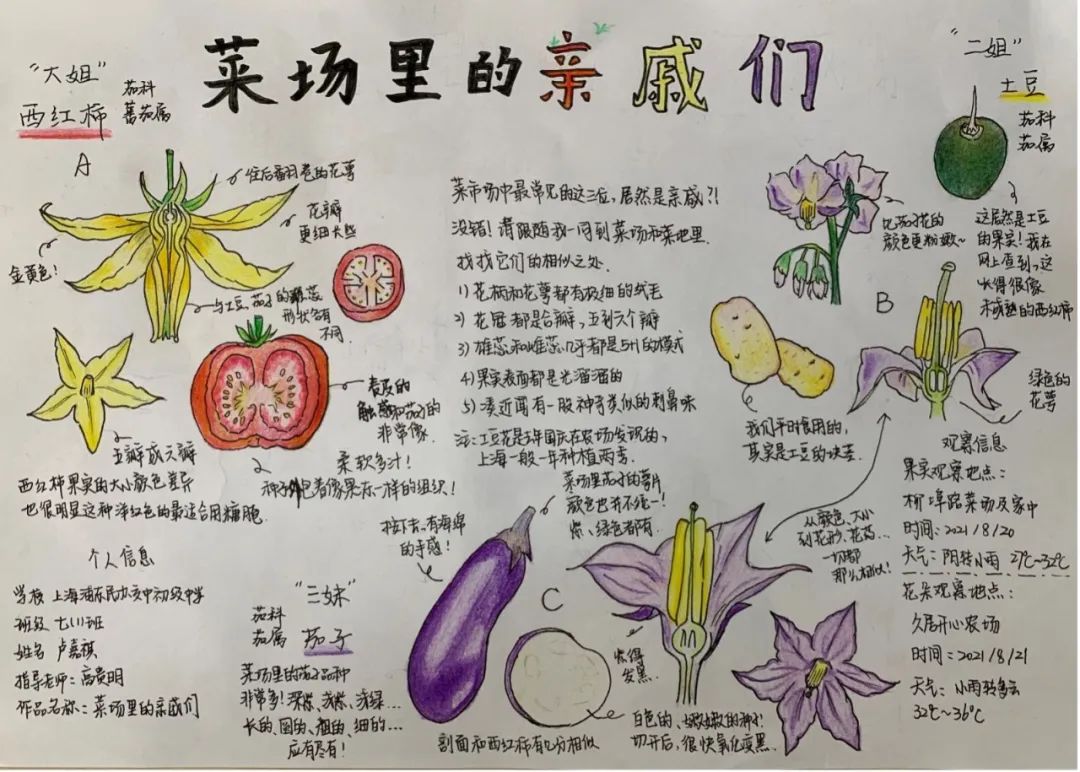 菜场里的亲戚们
"大姐"
西红柿
茄科
蕃茄属
A
往后翻卷的花萼
花瓣
更细长些
金黄色!
与土豆、茄子的雄蕊
形状各有
不同
五瓣或六瓣
表皮的
触感和茄子的
非常像
柔软多汁!
种子外包着像果冻一样的组织!
西红柿果实的大小颜色差异
也很明显这种洋红色的最适合用糖
菜市场中最常见的这三位,居然是亲戚?!
没错!请跟随我一同到菜场和菜地里
找找它们的相似之处.
1) 花柄和花萼都有极细的绒毛
2) 花冠都是合瓣,五到六个瓣
3) 雄蕊和雌蕊几乎都是5+1的模式
4) 果实表面都是光溜溜的
5) 凑近闻有一股神奇类似的刺鼻味
注:土豆花是去年国庆在农场发现的,
上海一般一年种植两季.
"二姐"
土豆
茄科
茄属
比茄子花的
颜色更粉嫩~
这居然是土豆
的果实!我在
网上查到,这
长得很像
未成熟的西红柿
B
绿色的
花萼
我们平时食用的,
其实是土豆的块茎.
从颜色、大小
到花形、花药...
一切都
那么相似!
观察信息
果实观察地点:
杨埠路菜场及家中
时间:2021/8/20
天气:阴转小雨 27℃~32℃
花朵观察地点:
久居开心农场
时间:2021/8/21
天气:小雨转多云
32℃~36℃
个人信息
学校 上海浦东民办交中初级中学
班级 七(1)班
姓名 卢嘉祺
指导老师:高贵明
作品名称:菜场里的亲戚们
"三妹"
茄科
茄属 茄子
菜场里的茄子品种
非常多!深紫、浅紫、浅绿...
长的、圆的、粗的、细的...
应有尽有!
按下去,有海绵
的手感!
菜场里茄子的萼片
颜色也并不统一!
紫、绿色都有.
C
紫得
发黑
剖面和西红柿有几分相似
白色的、嫩嫩的种子!
切开后,很快氧化变黑.